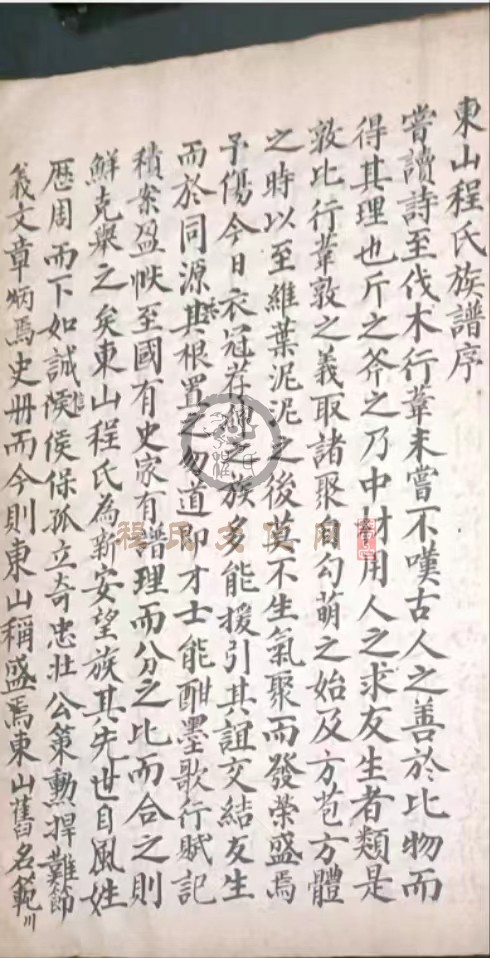 東山程氏族譜序
嘗讀詩至伐木行葦未嘗不嘆古人之善於比物而
得其理也斤之斧之乃中材用人之求友生者類是
敦比行葦敦之義取諸聚自勾萌之始及方苞方體
之時以至維葉泥泥之後莫不生氣聚而發榮盛焉
予傷今日衣冠荐紳之族多能援引其誼交結友生
而於同源共根置之勿道即才士能酣墨歌行賦記
積案盈帙至國有史家有譜理而分之比而合之則
鮮克舉之矣東山程氏為新安望族其先世自風姓
歷周而下如誠侯保孤立奇忠壯公策勳捍難節
義文章炳焉史冊而今則東山稱盛焉東山舊名範川
程氏文化网